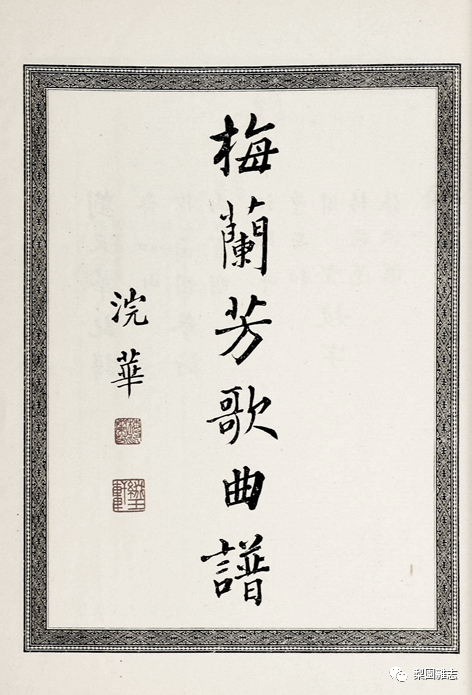 梅蘭芳歌曲譜
浣華
梨園雜志